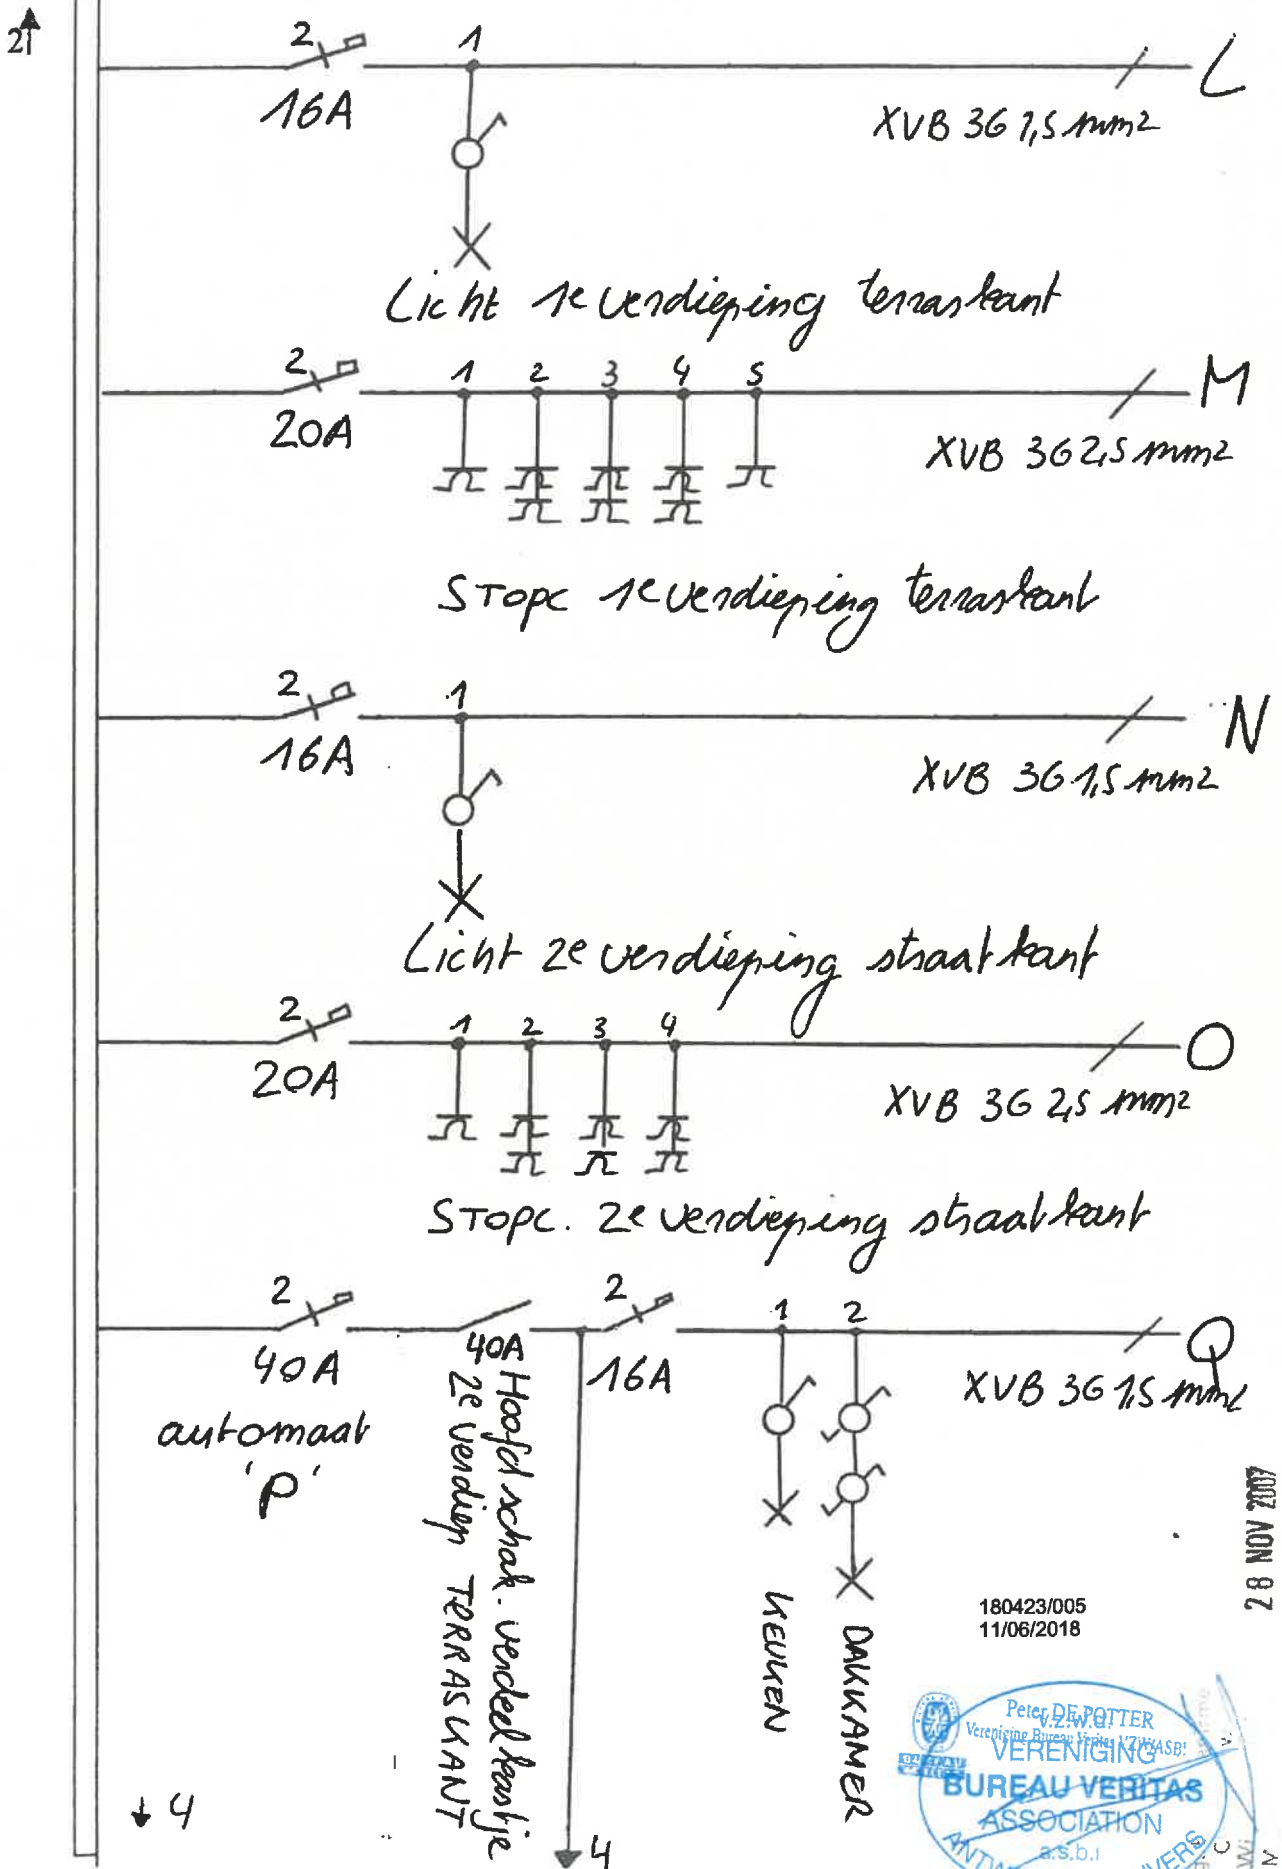 2
2
1
L
16A
XVB 3G 1,5 mm2
Licht 1e verdieping terraskant
2
1
2
3
4
5
M
20A
XVB 3G 2,5 mm2
STopc 1e verdieping terraskant
2
1
N
16A
XVB 3G 1,5 mm2
Licht 2e verdieping straatkant
2
1
2
3
4
O
20A
XVB 3G 2,5 mm2
STopc. 2e verdieping straatkant
2
2
1
2
Q
40A
40A
16A
XVB 3G 1,5 mm2
automaat
'P'
Hoofdschak. verdeelkastje
2e verdiep TERRASKANT
KEUKEN
DAKKAMER
28 NOV 2007
180423/005
11/06/2018
Peter DE POTTER
V.Z.W.
Vereniging Bureau Veritas VZW/ASBL
VERENIGING
BUREAU VERITAS
ASSOCIATION
a.s.b.l
4
4